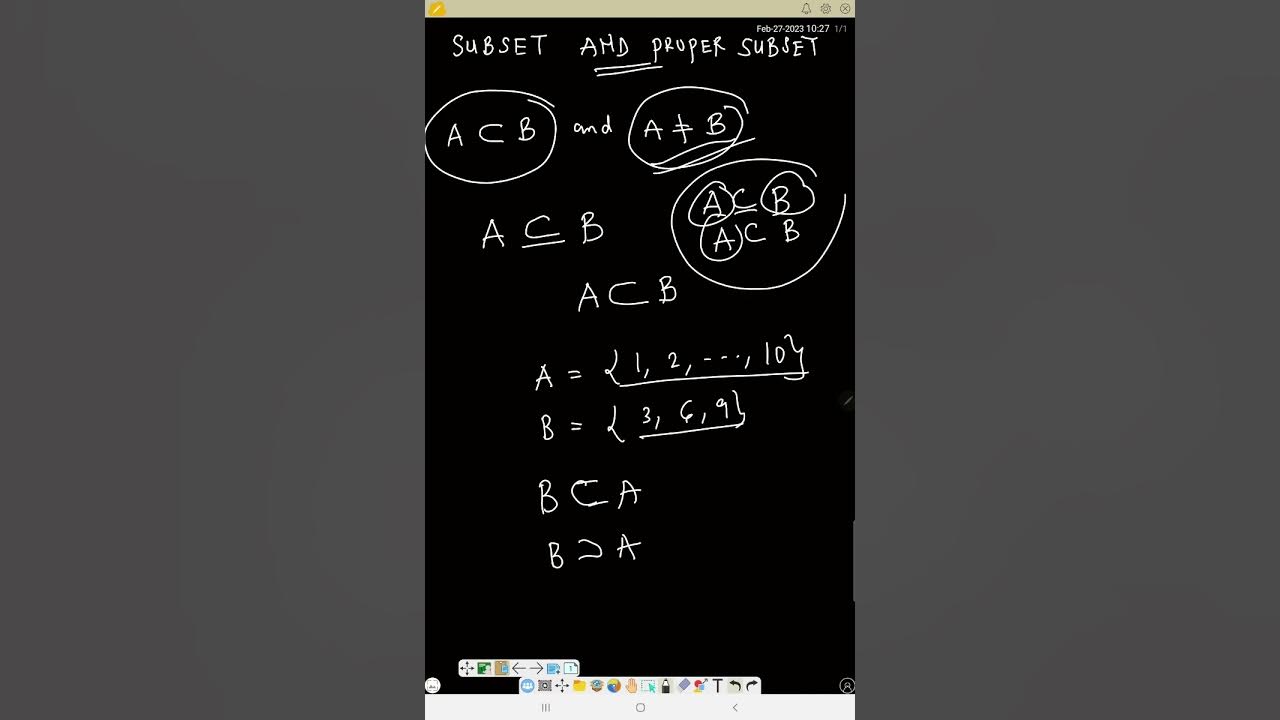 Feb-27-2023 10:27 1/1
SUBSET AND PROPER SUBSET
A ⊂ B and A ≠ B
A ⊆ B
A ⊆ B
A ⊂ B
A ⊂ B
A = {1, 2, ---, 10}
B = {3, 6, 9}
B ⊂ A
B ⊃ A
1
T